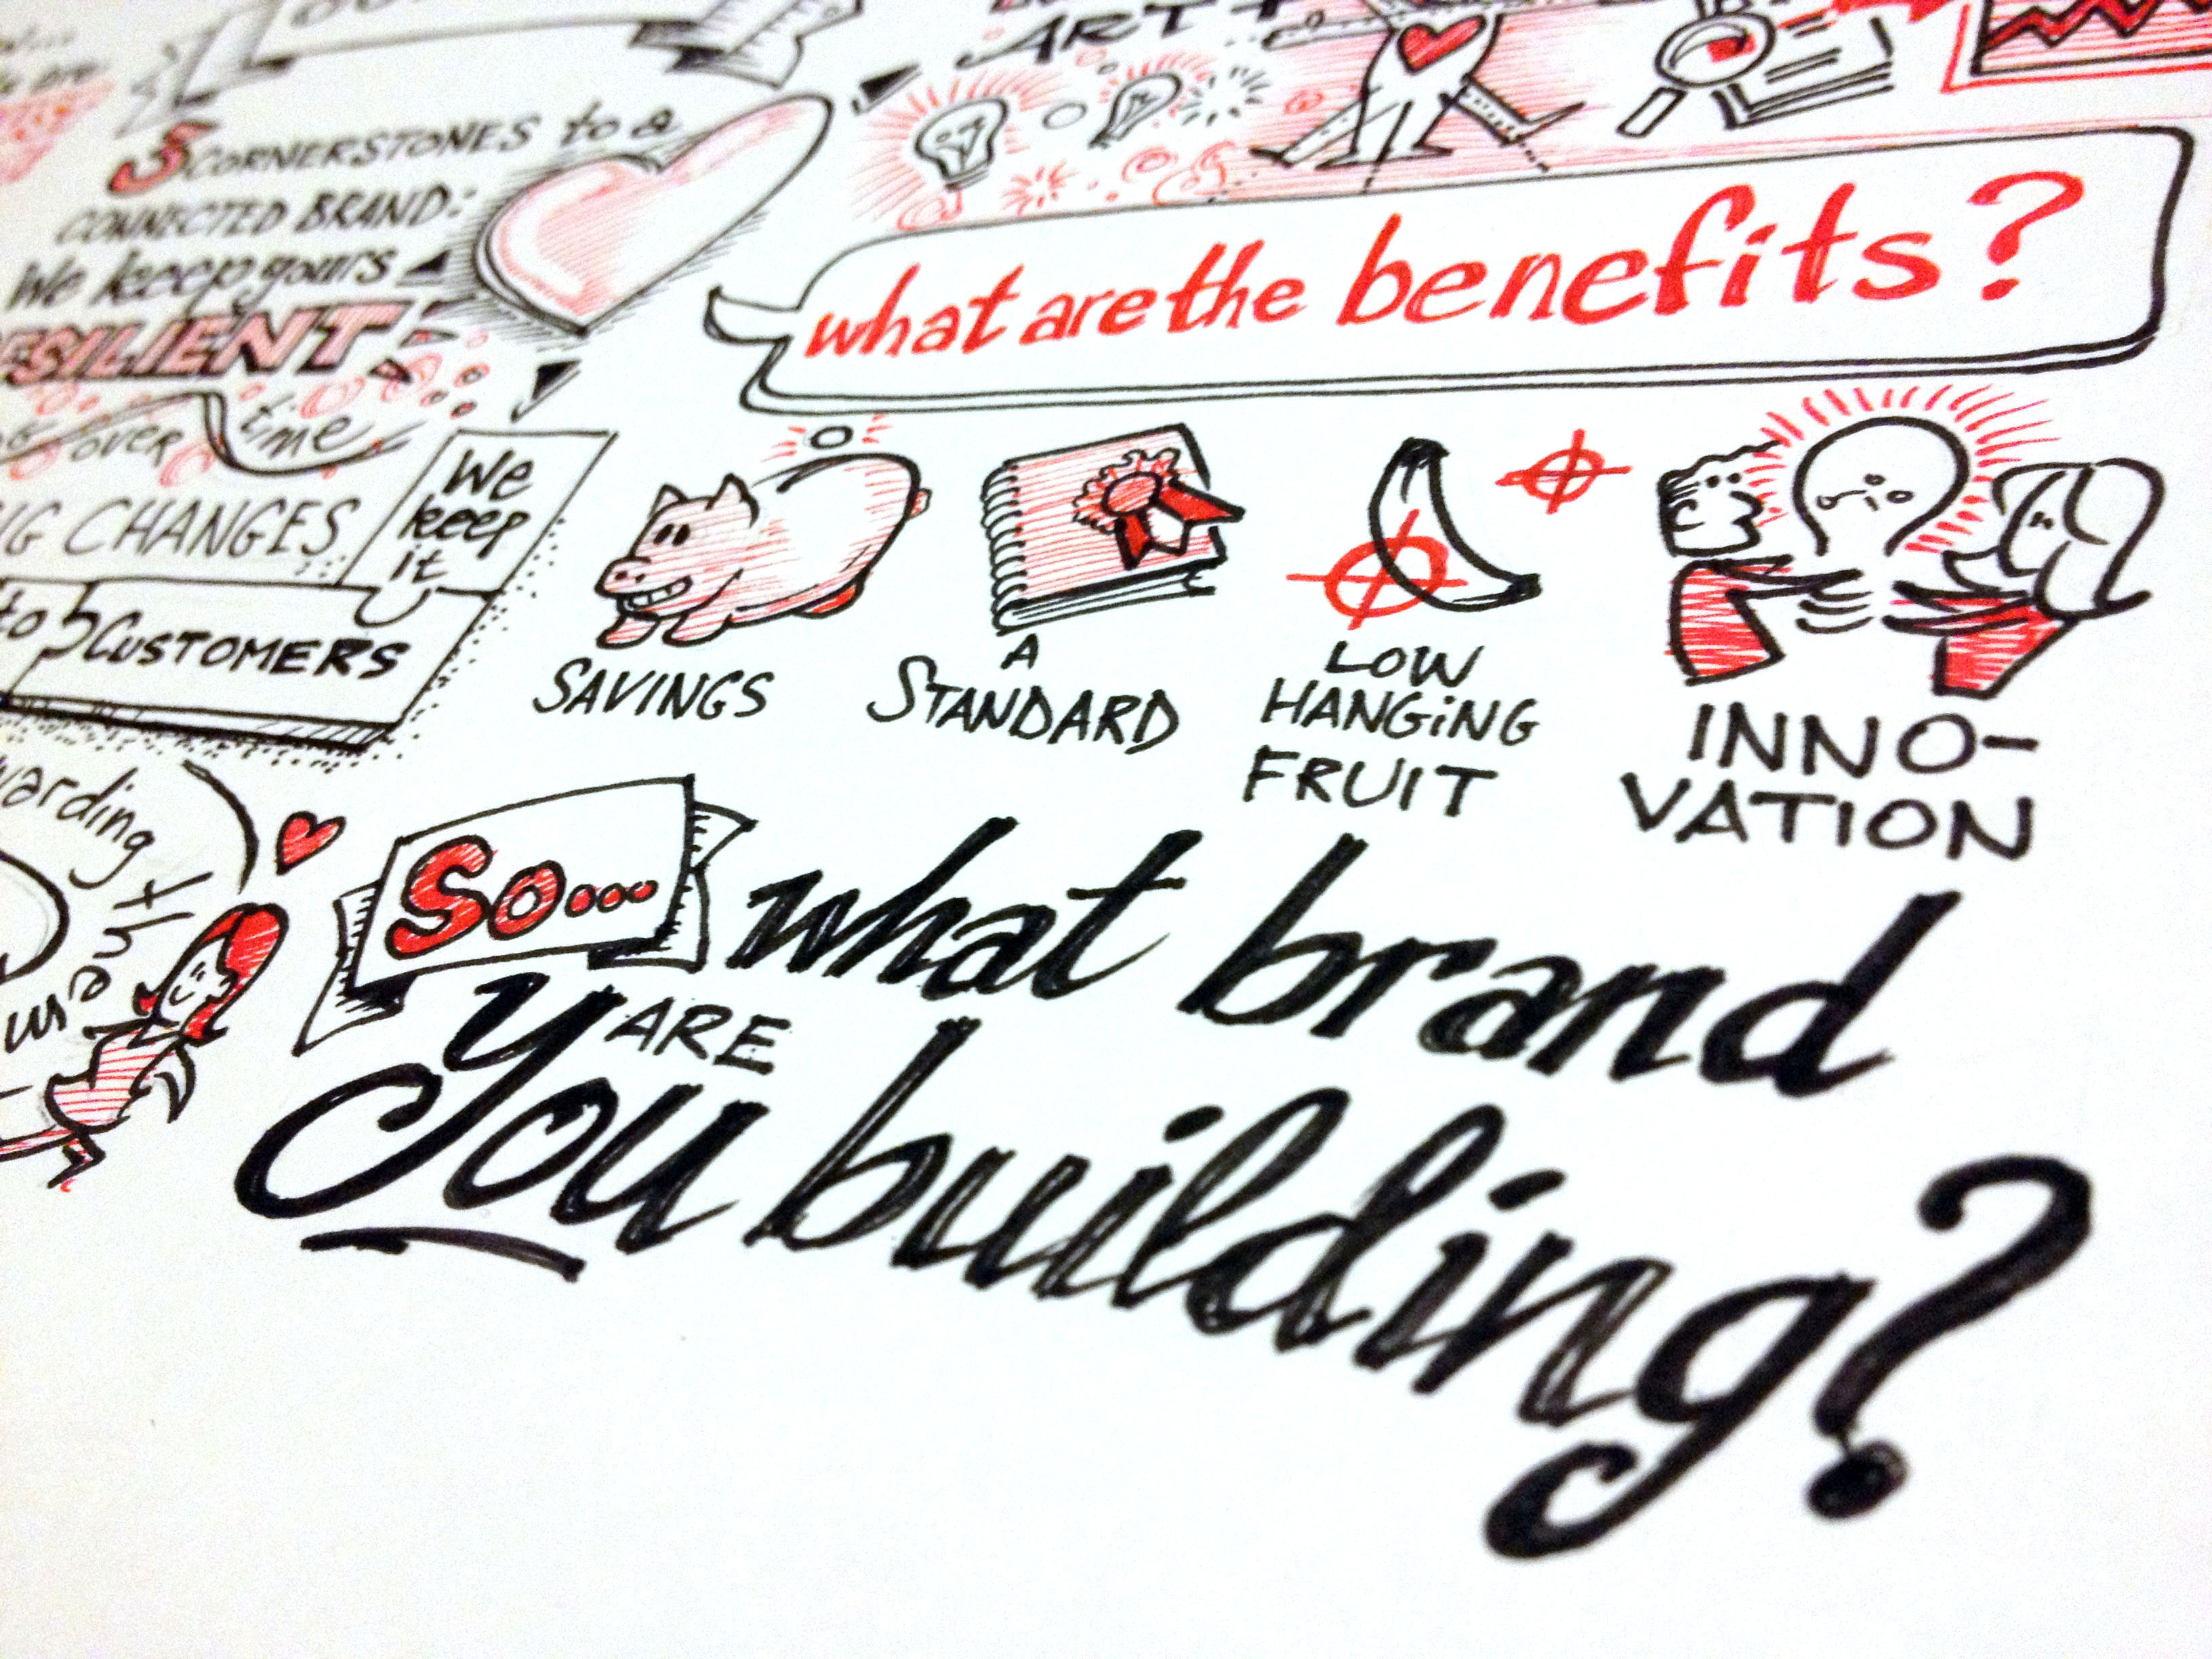 ART +
3 CORNERSTONES to a
CONNECTED BRAND:
We keep yours
RESILIENT
over time
BIG CHANGES
We
keep
it
to 5 CUSTOMERS
what are the benefits?
SAVINGS
A
STANDARD
LOW
HANGING
FRUIT
INNO-
VATION
them
So... what brand
ARE
you building?